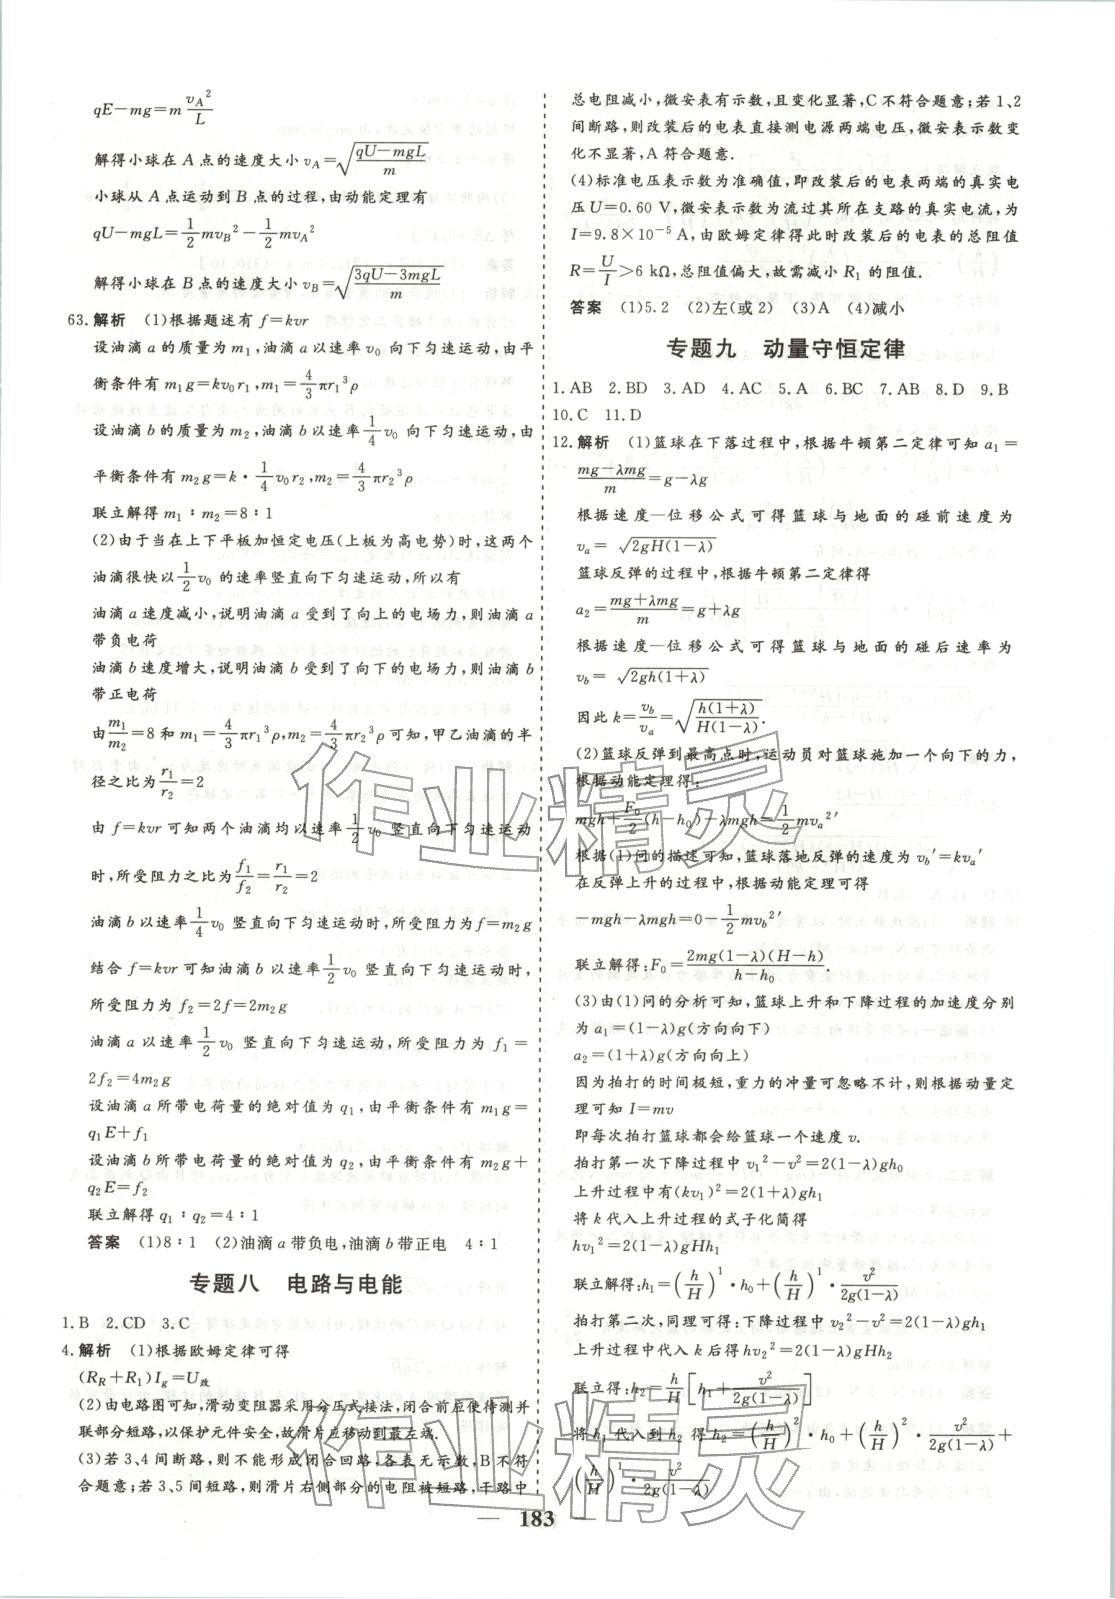 qE－mg＝m v_A²/L
解得小球在 A 点的速度大小 v_A＝√((qU－mgL)/m)
小球从 A 点运动到 B 点的过程,由动能定理有
qU－mgL＝1/2 mv_B²－1/2 mv_A²
解得小球在 B 点的速度大小 v_B＝√((3qU－3mgL)/m)
63.解析 (1)根据题述有 f＝kvr
设油滴 a 的质量为 m₁,油滴 a 以速率 v₀ 向下匀速运动,由平
衡条件有 m₁g＝kv₀r₁,m₁＝4/3 πr₁³ρ
设油滴 b 的质量为 m₂,油滴 b 以速率 1/4 v₀ 向下匀速运动,由
平衡条件有 m₂g＝k·1/4 v₀r₂,m₂＝4/3 πr₂³ρ
联立解得 m₁∶m₂＝8∶1
(2)由于当在上下平板加恒定电压(上板为高电势)时,这两个
油滴很快以 1/2 v₀ 的速率竖直向下匀速运动,所以有
油滴 a 速度减小,说明油滴 a 受到了向上的电场力,则油滴 a
带负电荷
油滴 b 速度增大,说明油滴 b 受到了向下的电场力,则油滴 b
带正电荷
由 m₁/m₂＝8 和 m₁＝4/3 πr₁³ρ, m₂＝4/3 πr₂³ρ 可知,甲乙油滴的半
径之比为 r₁/r₂＝2
由 f＝kvr 可知两个油滴均以速率 1/2 v₀ 竖直向下匀速运动
时,所受阻力之比为 f₁/f₂＝r₁/r₂＝2
油滴 b 以速率 1/4 v₀ 竖直向下匀速运动时,所受阻力 f＝m₂g
结合 f＝kvr 可知油滴 b 以速率 1/2 v₀ 竖直向下匀速运动时,
所受阻力为 f₂＝2f＝2m₂g
油滴 a 以速率 1/2 v₀ 竖直向下匀速运动,所受阻力为 f₁＝
2f₂＝4m₂g
设油滴 a 所带电荷量的绝对值为 q₁,由平衡条件有 m₁g＝
q₁E＋f₁
设油滴 b 所带电荷量的绝对值为 q₂,由平衡条件有 m₂g＋
q₂E＝f₂
联立解得 q₁∶q₂＝4∶1
答案 (1)8∶1 (2)油滴 a 带负电,油滴 b 带正电 4∶1
专题八 电路与电能
1.B 2.CD 3.C
4.解析 (1)根据欧姆定律可得
(R_R＋R₁)I_g＝U改
(2)由电路图可知,滑动变阻器采用分压式接法,闭合前应使待测并
联部分短路,以保护元件安全,故滑片应移动到最左端.
(3)若3、4间断路,则不能形成闭合回路,各表无示数,B 不符
合题意;若3、5间短路,则滑片右侧部分的电阻被短路,干路中
总电阻减小,微安表有示数,且变化显著,C不符合题意;若1、2
间断路,则改装后的电表直接测电源两端电压,微安表示数变
化不显著,A 符合题意.
(4)标准电压表示数为准确值,即改装后的电表两端的真实电
压U＝0.60 V,微安表示数为流过其所在支路的真实电流,为
I＝9.8×10⁻⁵ A,由欧姆定律得此时改装后的电表的总阻值
R＝U/I＞6 kΩ,总阻值偏大,故需减小 R₁ 的阻值.
答案 (1)5.2 (2)左(或2) (3)A (4)减小
专题九 动量守恒定律
1.AB 2.BD 3.AD 4.AC 5.A 6.BC 7.AB 8.D 9.B
10.C 11.D
12.解析 (1)篮球在下落过程中,根据牛顿第二定律可知 a₁＝
(mg－λmg)/m＝g－λg
根据速度—位移公式可得篮球与地面的碰前速度为
v_a＝√(2gH(1－λ))
篮球反弹的过程中,根据牛顿第二定律得
a₂＝(mg＋λmg)/m＝g＋λg
根据速度—位移公式可得篮球与地面的碰后速率为
v_b＝√(2gh(1＋λ))
因此 k＝v_b/v_a＝√(h(1＋λ)/H(1－λ)).
(2)篮球反弹到最高点时,运动员对篮球施加一个向下的力,
根据动能定理得:
mgh＋F₀/2(h－h₀)－λmgh＝1/2 mv_a²′
根据(1)问的描述可知,篮球落地反弹的速度为 v_b′＝kv_a′
在反弹上升的过程中,根据动能定理可得
－mgh－λmgh＝0－1/2 mv_b²′
联立解得:F₀＝2mg(1－λ)(H－h)/(h－h₀)
(3)由(1)问的分析可知,篮球上升和下降过程的加速度分别
为 a₁＝(1－λ)g(方向向下)
a₂＝(1＋λ)g(方向向上)
因为拍打的时间极短,重力的冲量可忽略不计,则根据动量定
理可知 I＝mv
即每次拍打篮球都会给篮球一个速度 v.
拍打第一次下降过程中 v₁²－v²＝2(1－λ)gh₀
上升过程中有(kv₁)²＝2(1＋λ)gh₁
将 k 代入上升过程的式子化简得
hv₁²＝2(1－λ)gHh₁
联立解得:h₁＝(h/H)¹·h₀＋(h/H)¹·v²/2g(1－λ)
拍打第二次,同理可得:下降过程中 v₂²－v²＝2(1－λ)gh₁
上升过程中代入 k 后得 hv₂²＝2(1－λ)gHh₂
联立得:h₂＝h/H[h₁＋v²/2g(1－λ)]
将 h₁ 代入到 h₂ 得 h₂＝(h/H)²·h₀＋(h/H)²·v²/2g(1－λ)＋
(h/H)¹·v²/2g(1－λ)
作业精灵
作业精灵
183